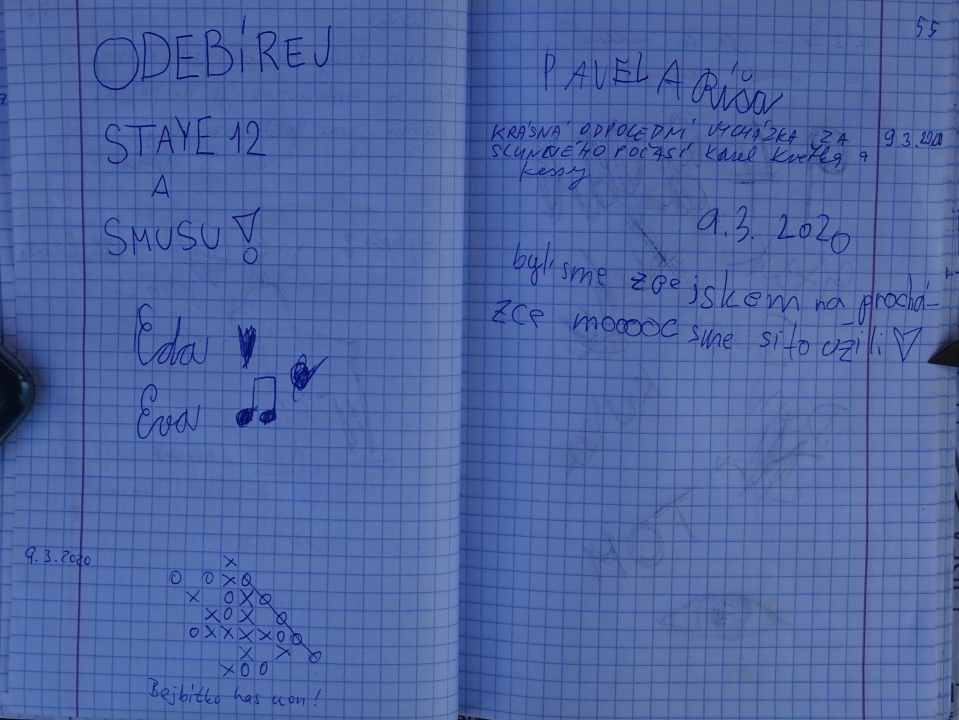 ODEBÍREJ
STAYE 12
A
SMUSU
Eda
Eva
9.3.2020
X
O O X O
X O X O
X O X O
O X X X X O O
X X O
X O O
Bejbitko has won!
55
PAVEL A Ríša
KRÁSNÁ ODPOLEDNÍ VYCHÁZKA ZA 9.3.2020
SLUNNÉHO POČASÍ Karel Květka a
Kessy
9.3. 2020
byli sme zpejskem na prochá-
zce mooooc sme si to užili